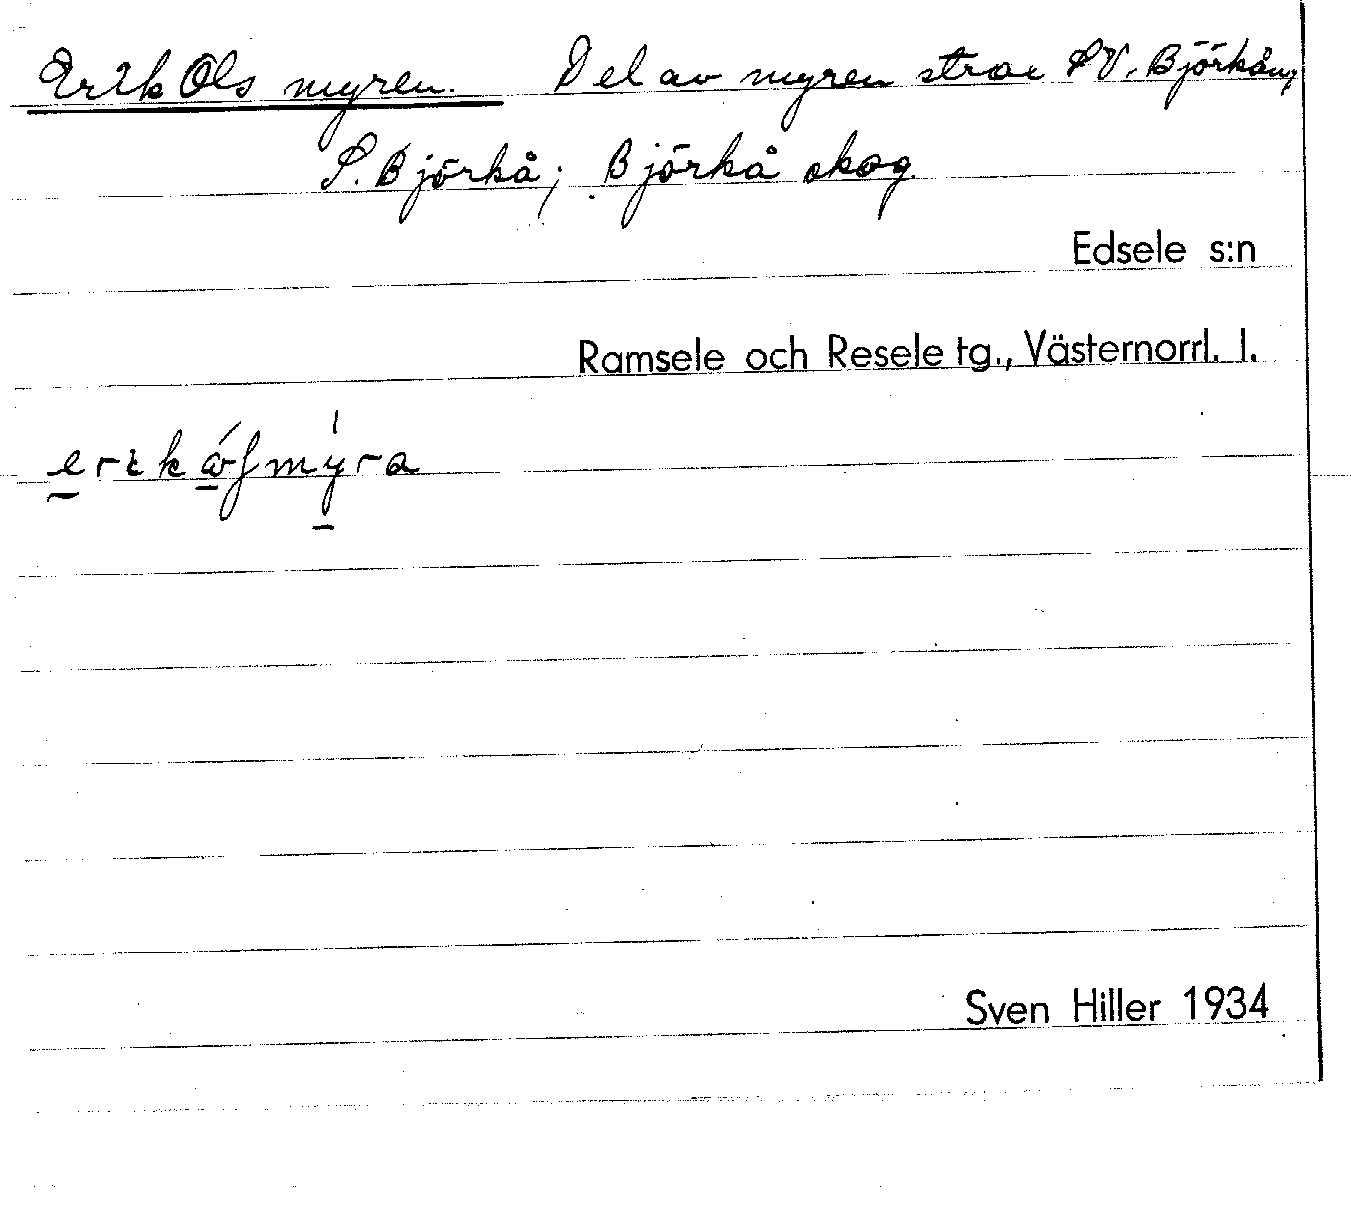 Erik Ols myren. Del av myren strax SV. Björkåm,
S. Björkå; Björkå skog.
Edsele s:n
Ramsele och Resele tg., Västernorrl. l.
Sven Hiller 1934